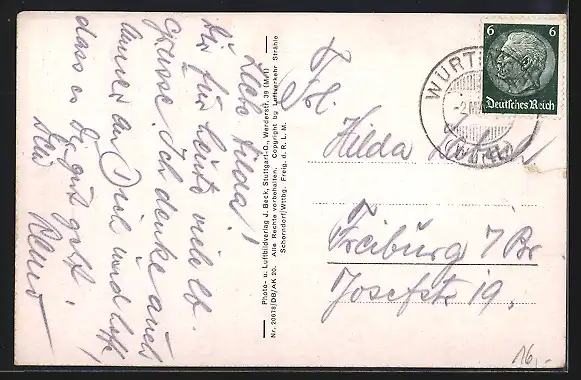 Liebe Hilda!
Dir für heute viele lb.
Grüsse. Ich denke auch
immer an Dich und hoffe,
dass es Dir gut geht.
Photo- u. Luftbildverlag J. Beck, Stuttgart-O., Werderstr. 39 (Mel)
Nr. 20678/DB/AK 20. Alle Rechte vorbehalten. Copyright by Luftverkehr Strähle
Schorndorf/Wttbg. Freig. d. R. L. M.
6 6
Deutsches Reich
WURT
(Württ)
Frl.
Hilda
Freiburg / Br
Josefstr 19.
16,-